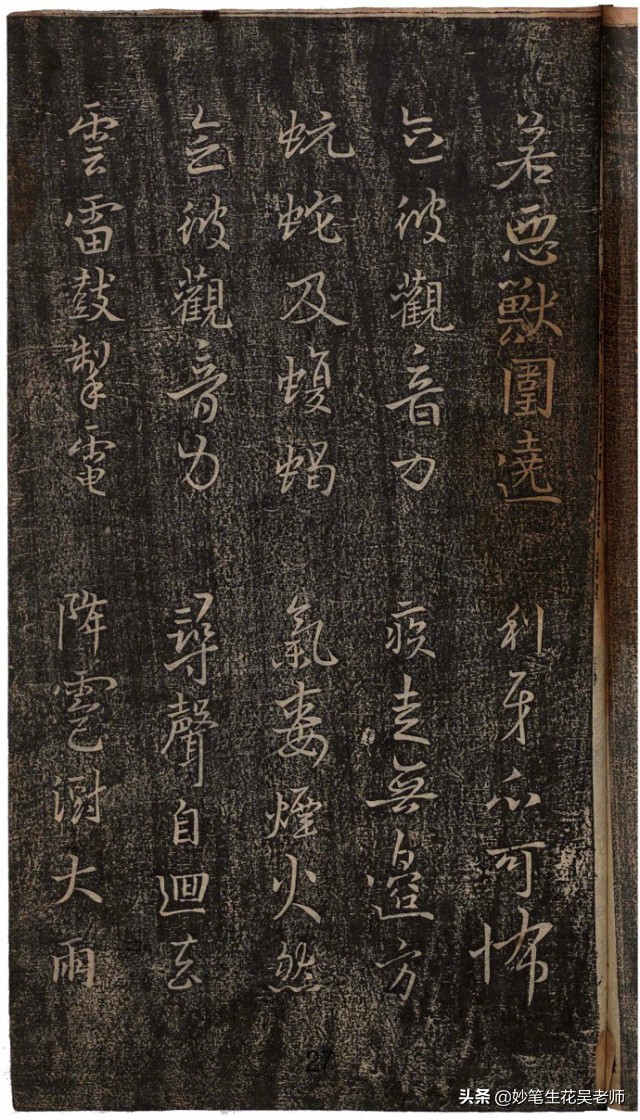 若惡獸圍遶 利牙爪可怖
念彼觀音力 疾走無邊方
蚖蛇及蝮蝎 氣毒煙火然
念彼觀音力 尋聲自迴去
雲雷鼓掣電 降雹澍大雨
27
头条 @妙笔生花吴老师